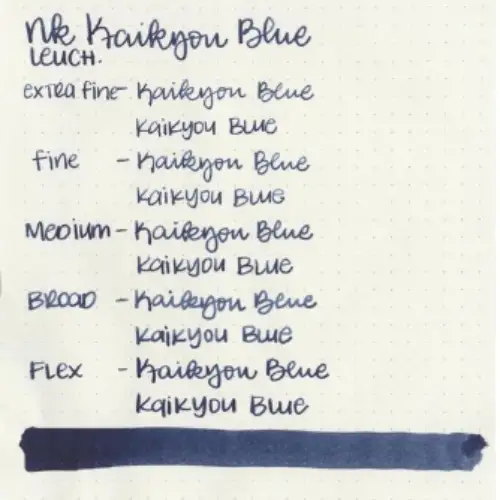 NK Kaikyou Blue
LEUCH.
extra fine - Kaikyou Blue
Kaikyou Blue
fine - Kaikyou Blue
Kaikyou Blue
Medium - Kaikyou Blue
Kaikyou Blue
BROAD - Kaikyou Blue
Kaikyou Blue
FLEX - Kaikyou Blue
Kaikyou Blue